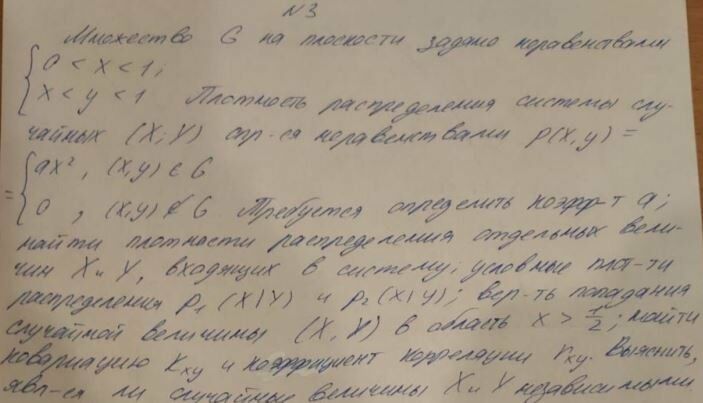 №3
Множество G на плоскости задано неравенствами
{ 0 < x < 1;
{ x < y < 1 Плотность распределения системы слу-
чайных (X; Y) опр-ся неравенствами p(x,y) =
= { ax², (x,y) ∈ G
{ 0, (x,y) ∉ G Требуется определить коэфф-т a;
найти плотности распределения отдельных вели-
чин X и Y, входящих в систему; условные плот-ти
распределения p₁ (X|Y) и p₂ (X|y); вер-ть попадания
случайной величины (X, Y) в область x > 1/2; найти
ковариацию Kxy и коэффициент корреляции rxy. Выяснить,
явл-ся ли случайные величины X и Y независимыми